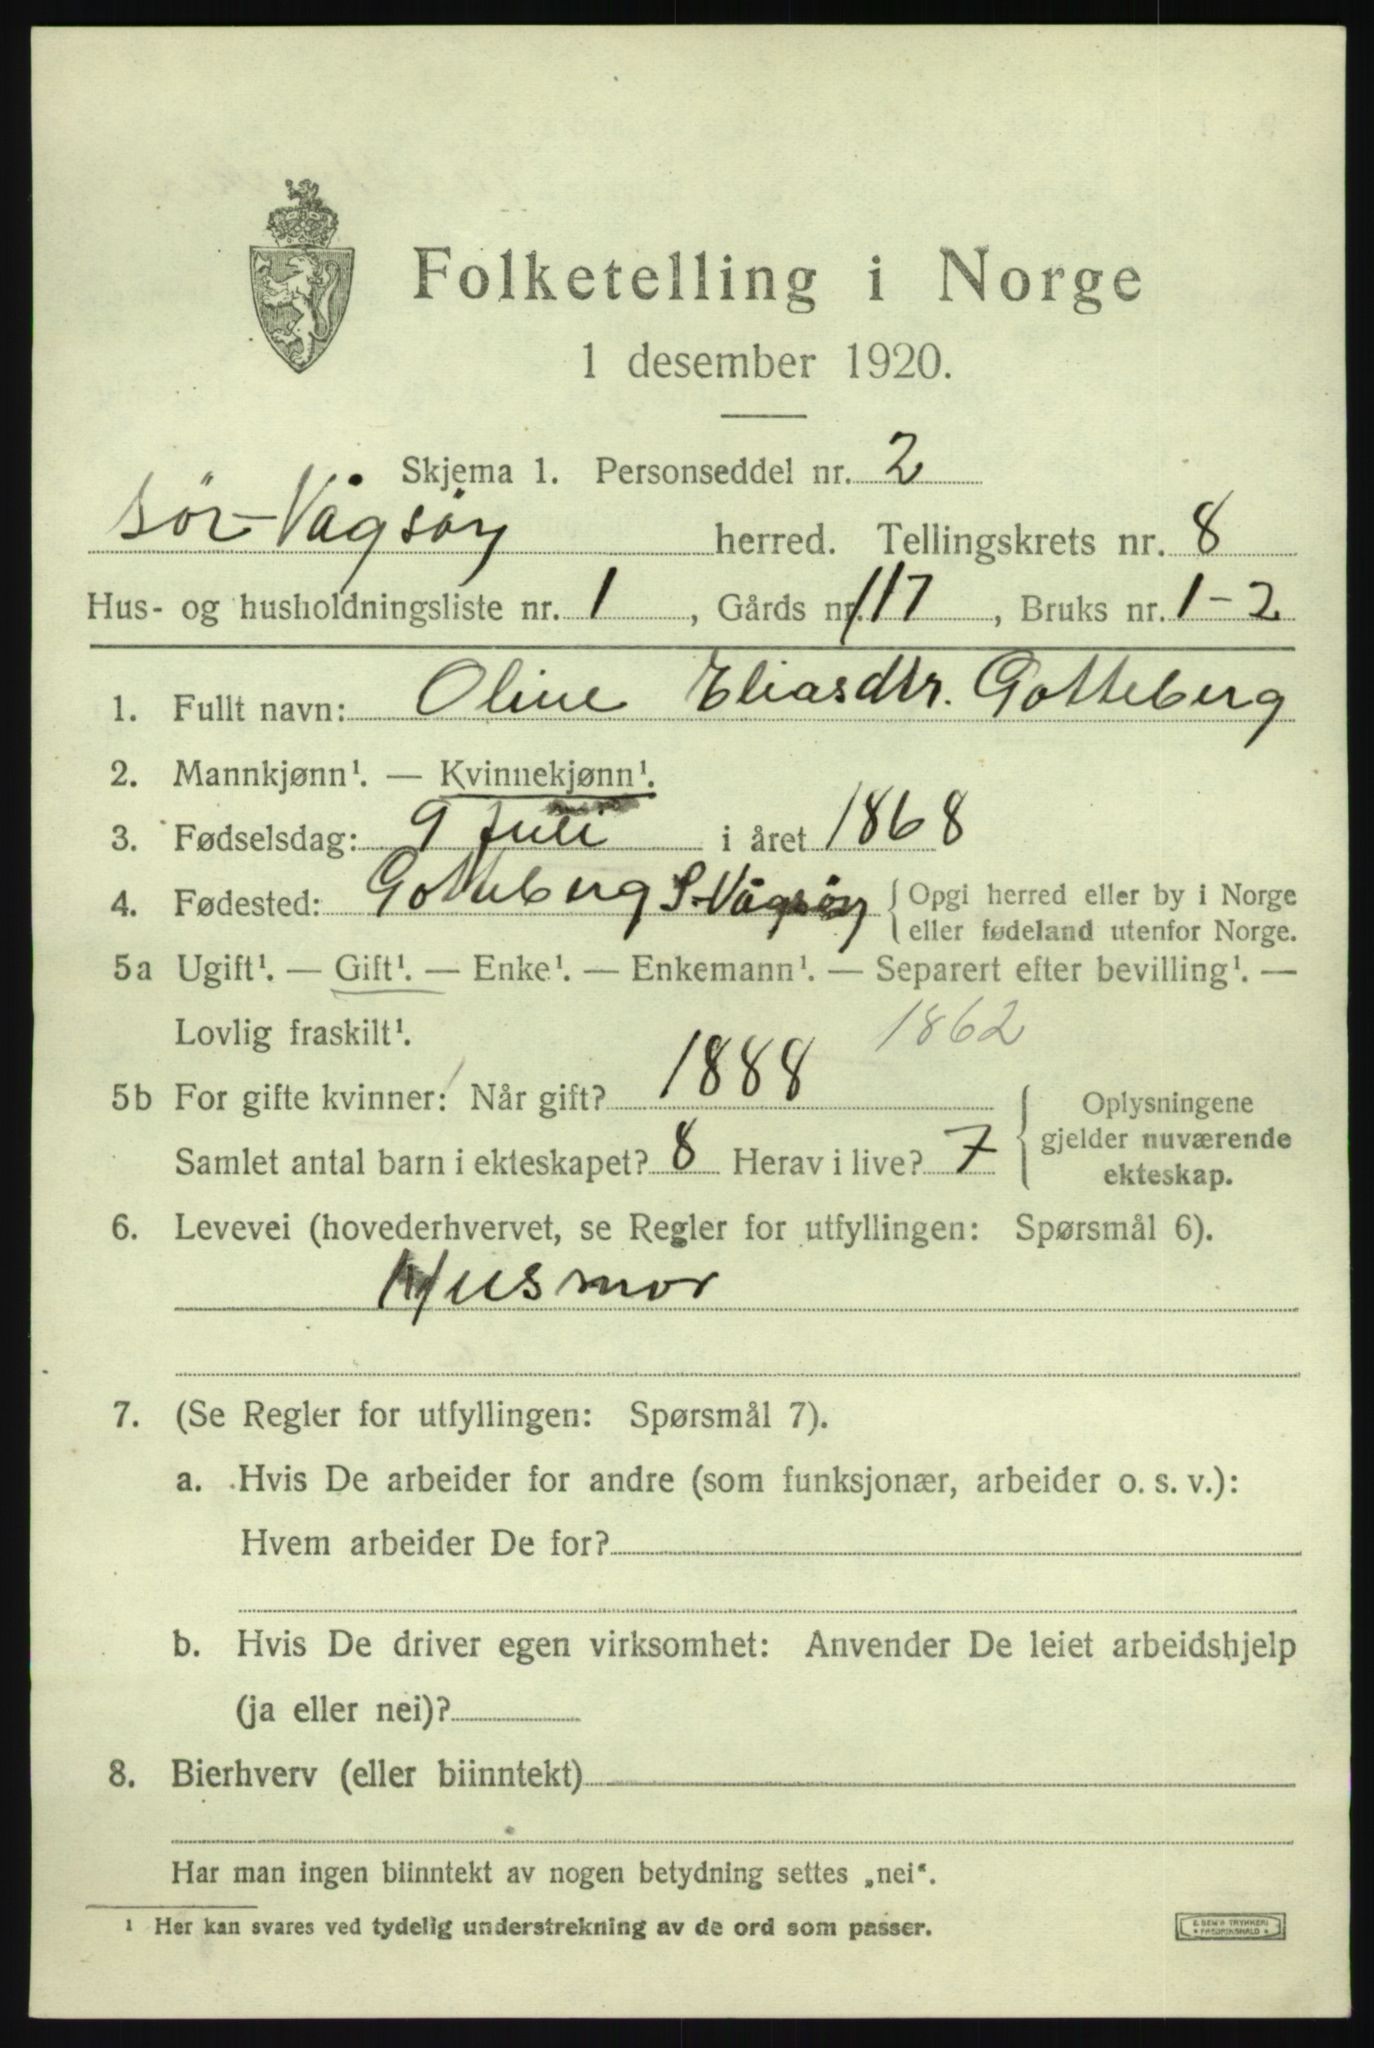 Folketelling i Norge
1 desember 1920.
Skjema 1. Personseddel nr. 2
Sør-Vågsøy herred. Tellingskrets nr. 8
Hus- og husholdningsliste nr. 1, Gårds nr. 117, Bruks nr. 1-2
1. Fullt navn: Oline Eliasdtr. Gotteberg
2. Mannkjønn¹. — Kvinnekjønn¹.
3. Fødselsdag: 9 Juli i året 1868
4. Fødested: Gotteberg S-Vågsøy { Opgi herred eller by i Norge
eller fødeland utenfor Norge.
5a Ugift¹. — Gift¹. — Enke¹. — Enkemann¹. — Separert efter bevilling¹. —
Lovlig fraskilt¹. 1862
5b For gifte kvinner: Når gift? 1888 { Oplysningene
gjelder nuværende
ekteskap.
Samlet antal barn i ekteskapet? 8 Herav i live? 7
6. Levevei (hovederhvervet, se Regler for utfyllingen: Spørsmål 6).
Husmor
7. (Se Regler for utfyllingen: Spørsmål 7).
a. Hvis De arbeider for andre (som funksjonær, arbeider o. s. v.):
Hvem arbeider De for?
b. Hvis De driver egen virksomhet: Anvender De leiet arbeidshjelp
(ja eller nei)?
8. Bierhverv (eller biinntekt)
Har man ingen biinntekt av nogen betydning settes „nei“.
¹ Her kan svares ved tydelig understrekning av de ord som passer.
E. SEM'S TRYKKERI
* FREDRIKSHALD *